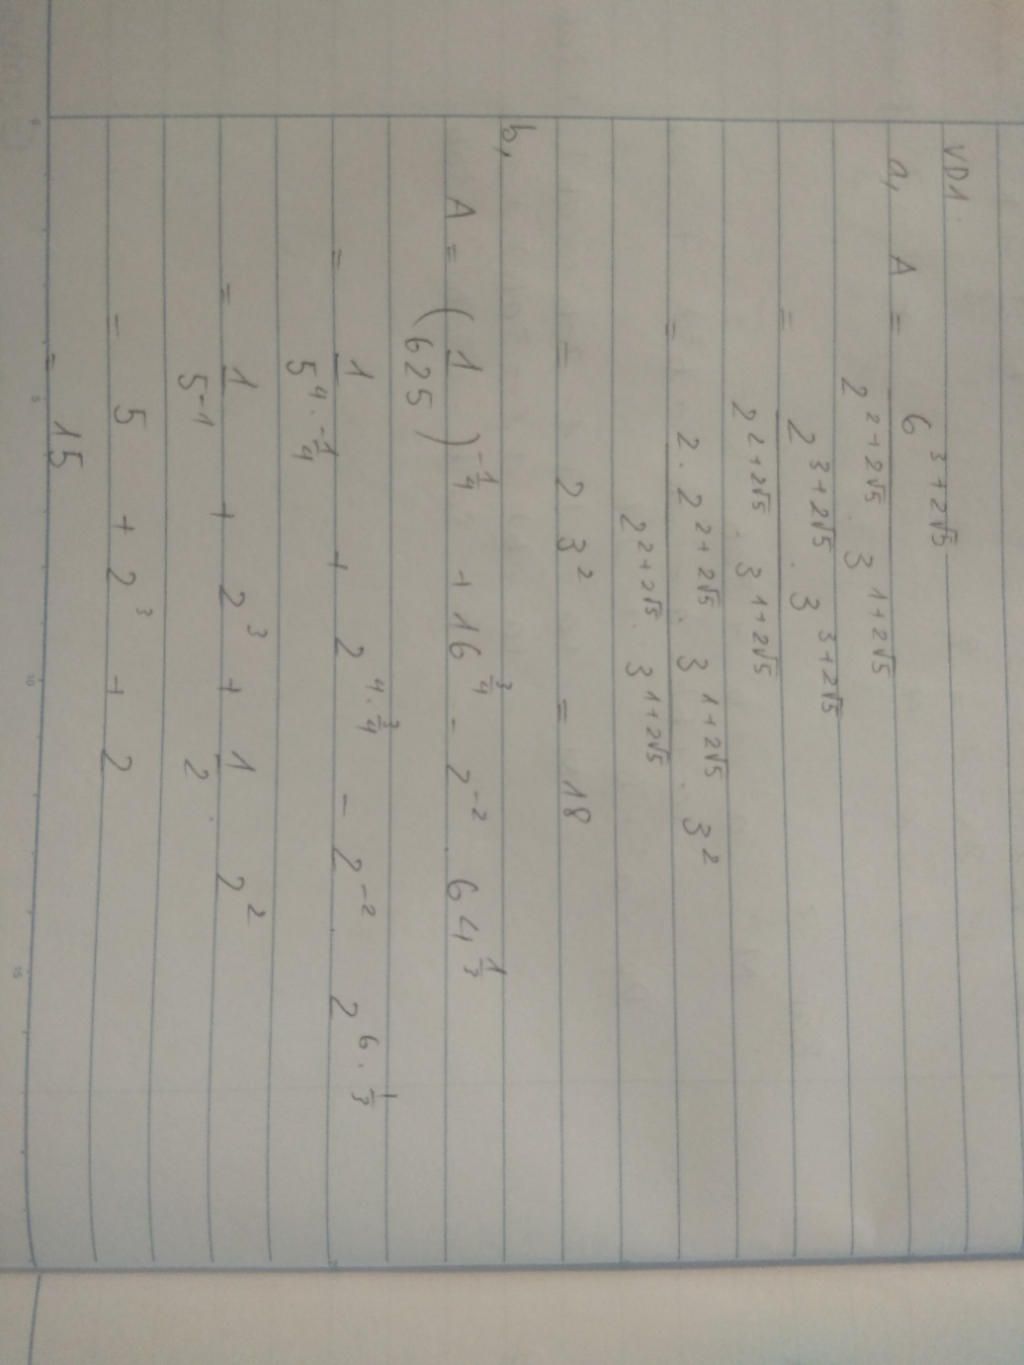 VD1.
a, A = 6^{3+2√5} / 2^{2+2√5} . 3^{1+2√5}
= 2^{3+2√5} . 3^{3+2√5} / 2^{2+2√5} . 3^{1+2√5}
= 2 . 2^{2+2√5} . 3^{1+2√5} . 3^2 / 2^{2+2√5} . 3^{1+2√5}
= 2 3^2 = 18
b,
A = (1/625)^{-1/4} + 16^{3/4} - 2^{-2} . 64^{1/3}
= 1/5^{4.-1/4} + 2^{4.3/4} - 2^{-2} . 2^{6.1/3}
= 1/5^{-1} + 2^3 + 1/2 . 2^2
= 5 + 2^3 + 2
= 15